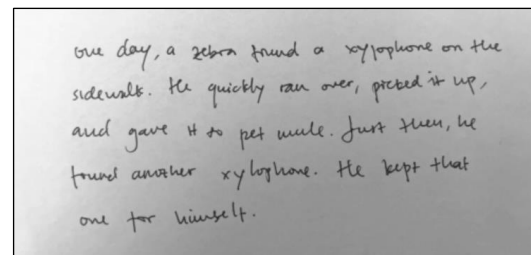 one day, a zebra found a xylophone on the
sidewalk. He quickly ran over, picked it up,
and gave it to pet mule. Just then, he
found another xylophone. He kept that
one for himself.